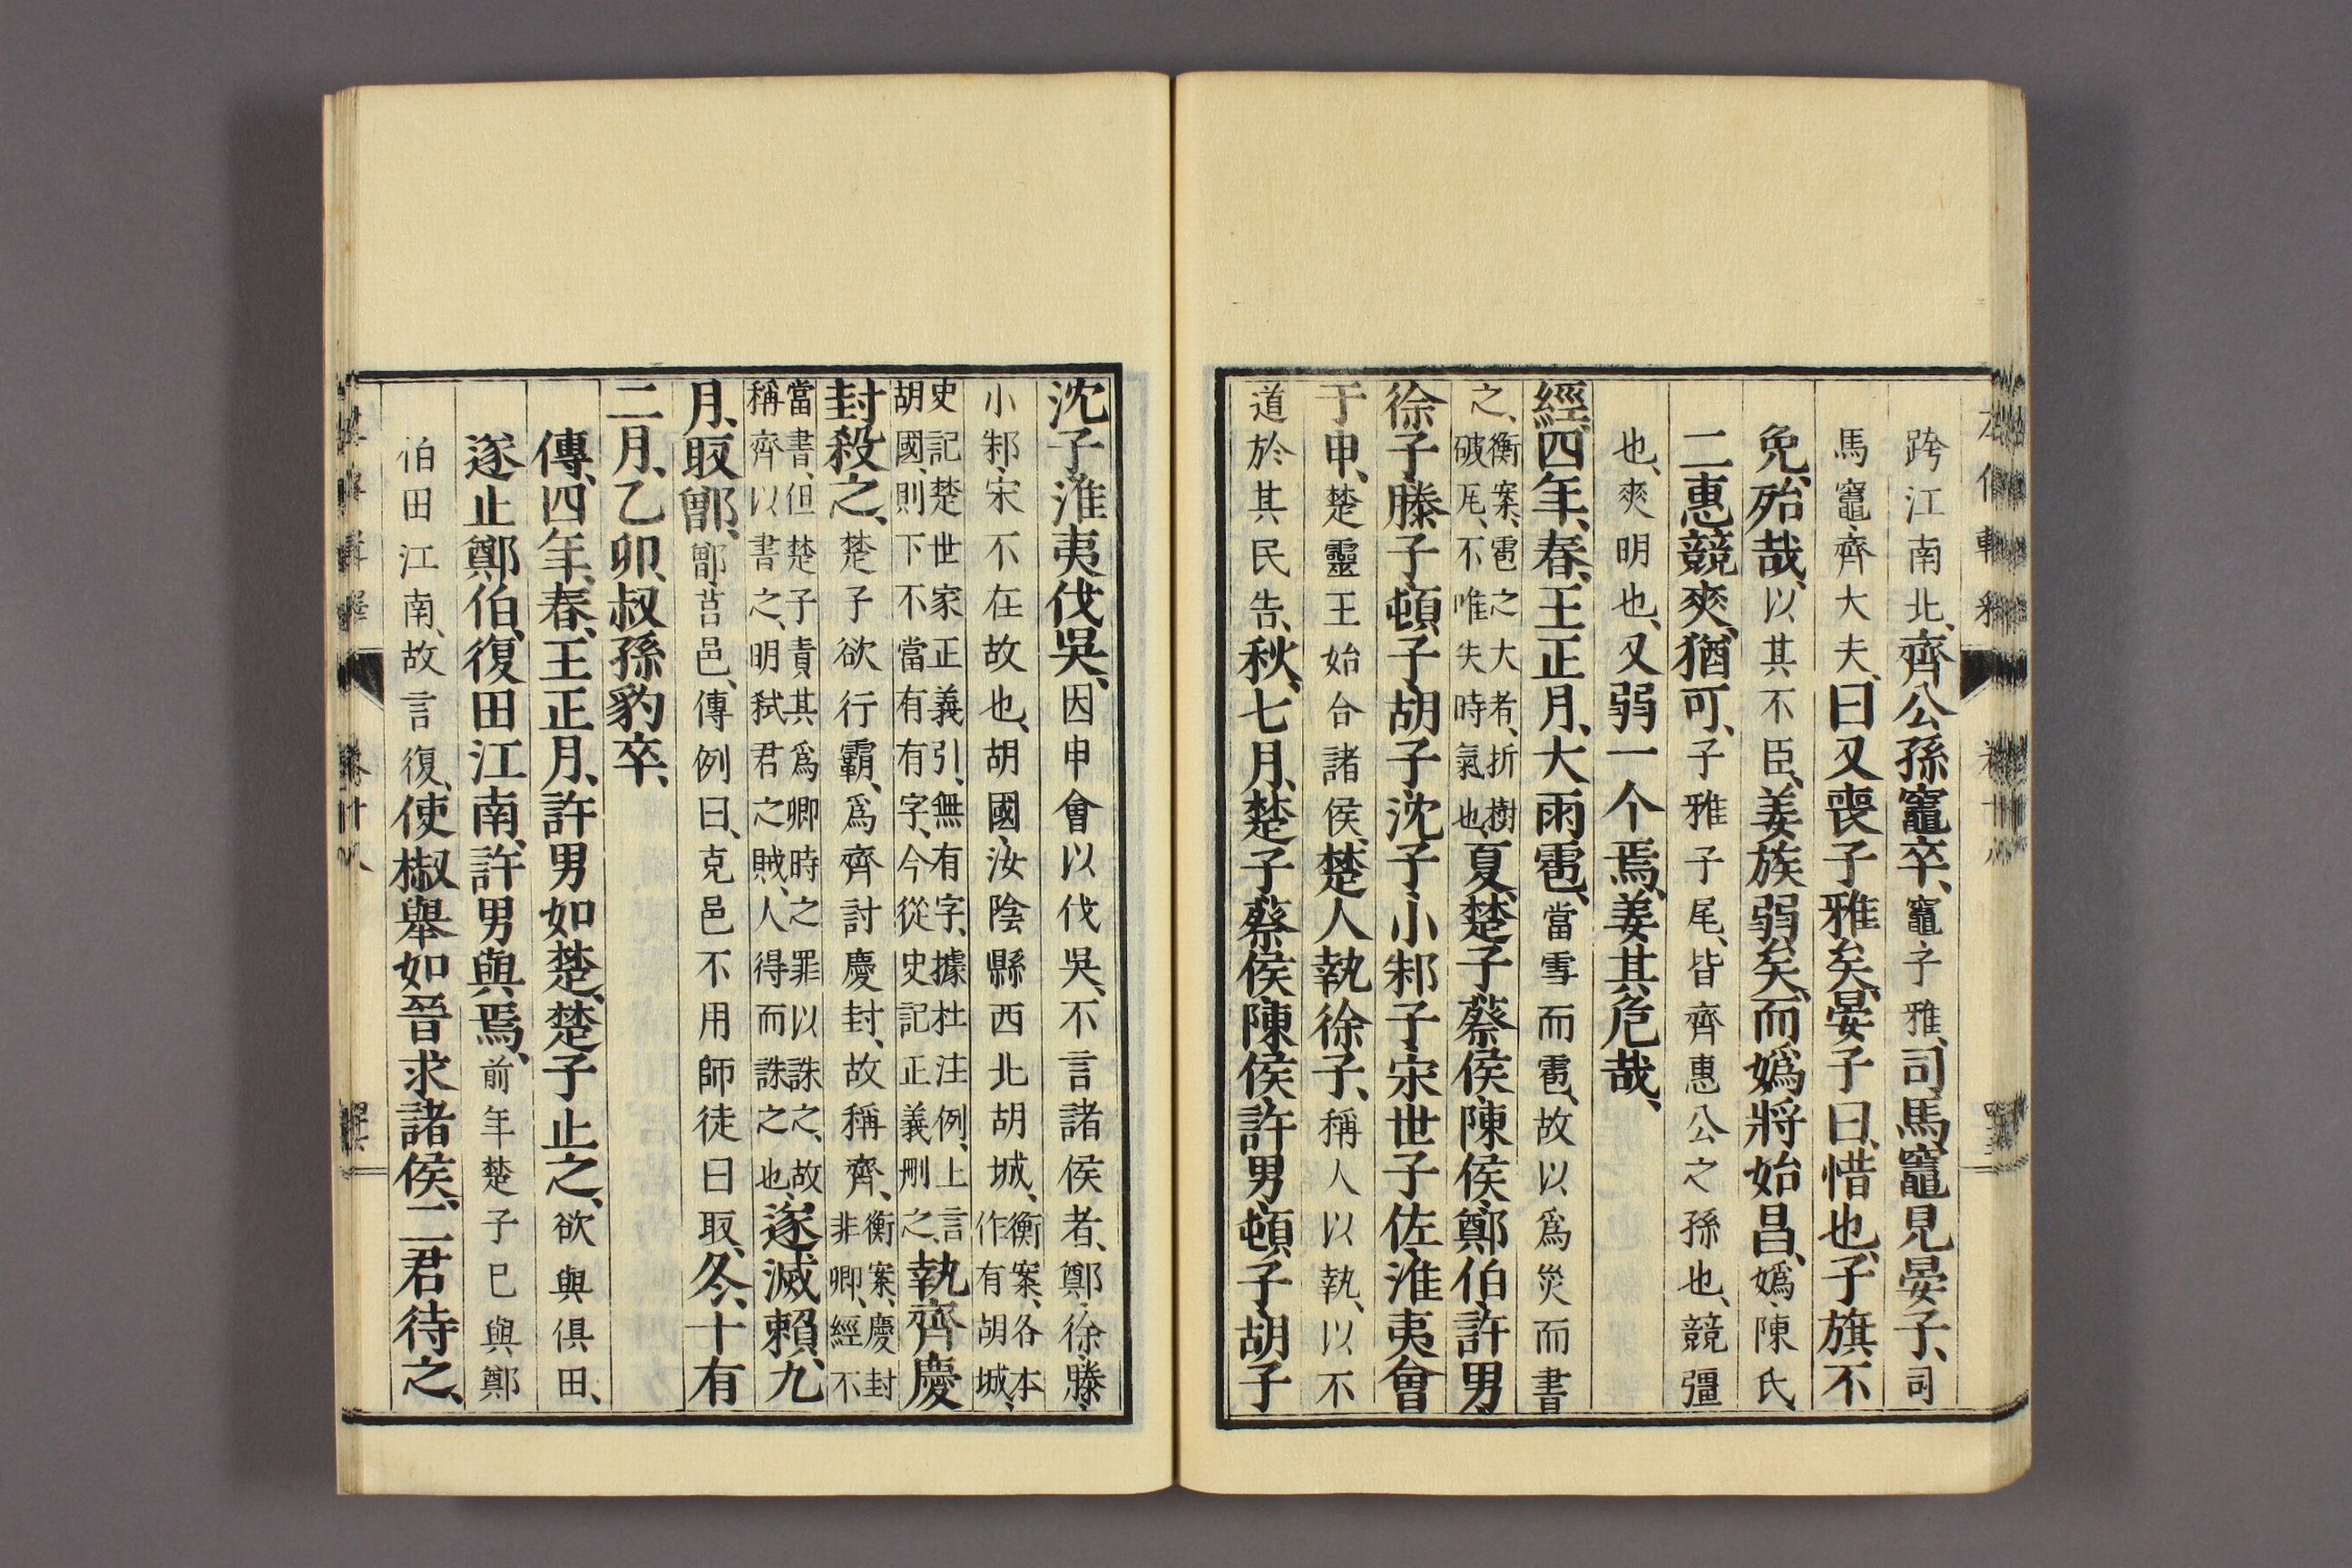 跨江南北、齊公孫竈卒、竈子雅、司馬竈見晏子、司
馬竈、齊大夫、曰又喪子雅矣、晏子曰、惜也、子旗不
免、殆哉、以其不臣、姜族弱矣、而嬀將始昌、嬀、陳氏
二惠競爽、猶可、子雅子尾、皆齊惠公之孫也、競彊
也、爽明也、又弱一个焉、姜其危哉、
經四年、春、王正月、大雨雹、當雪而雹、故以爲災而書
之、衡案、雹之大者、折樹破瓦、不唯失時氣也、夏、楚子蔡侯陳侯鄭伯許男
徐子滕子頓子胡子沈子小邾子宋世子佐淮夷會
于申、楚靈王始合諸侯、楚人執徐子、稱人以執、以不
道於其民告、秋、七月、楚子蔡侯陳侯許男頓子胡子
沈子淮夷伐吳、因申會以伐吳、不言諸侯者、鄭徐滕
小邾宋不在故也、胡國、汝陰縣西北胡城、衡案、各本作有胡城、
史記楚世家正義引、無有字、據杜注例、上言胡國、則下不當有有字、今從史記正義刪之、執齊慶
封殺之、楚子欲行霸、爲齊討慶封、故稱齊、衡案、慶封非卿、經不
當書、但楚子責其爲卿時之罪以誅之、故稱齊以書之、明弑君之賊、人得而誅之也、遂滅賴、九
月、取鄫、鄫、莒邑、傳例曰、克邑不用師徒曰取、冬、十有
二月、乙卯、叔孫豹卒、
傳、四年、春、王正月、許男如楚、楚子止之、欲與俱田、
遂止鄭伯、復田江南、許男與焉、前年楚子已與鄭
伯田江南、故言復、使椒舉如晉求諸侯、二君待之、
卷十八